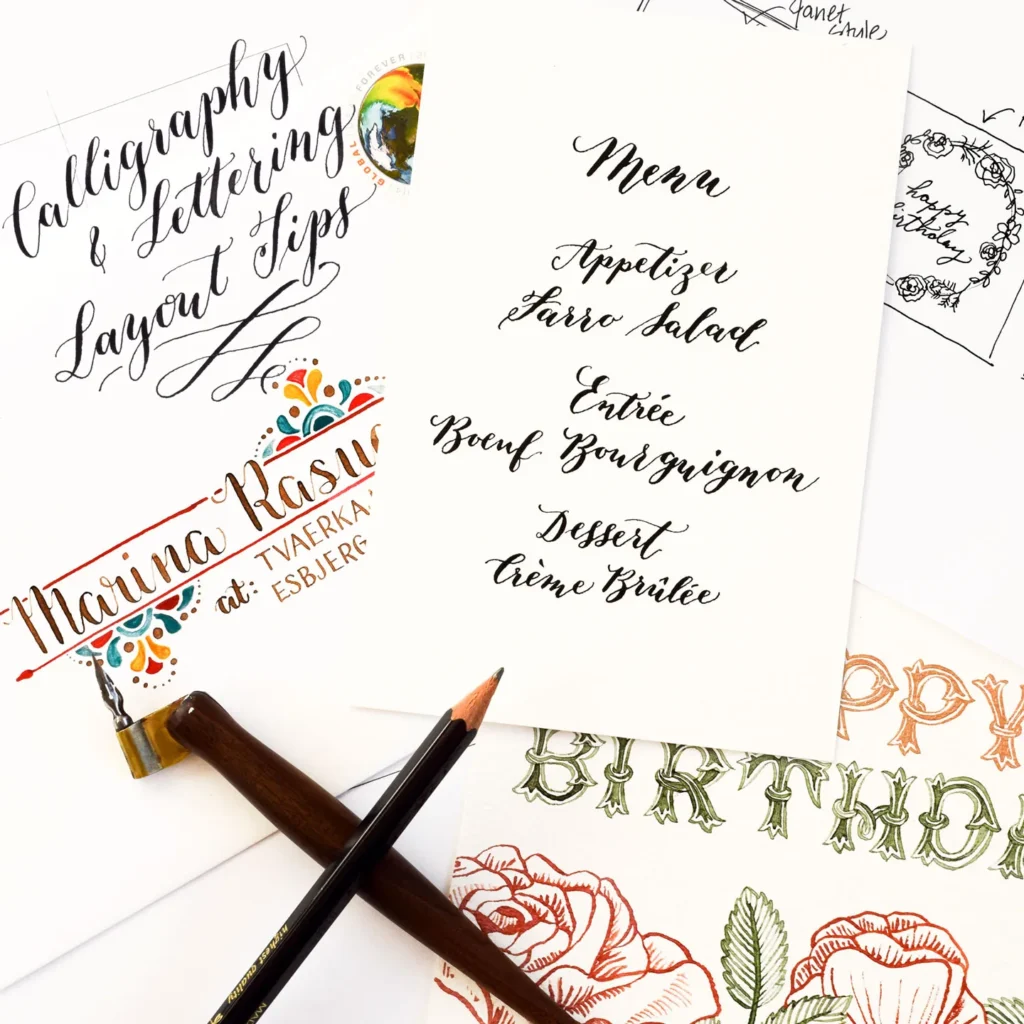 Calligraphy
& Lettering
Layout Tips
FOREVER
GLOBAL
Janet
Style
Menu
Appetizer
Farro Salad
Entrée
Boeuf Bourguignon
Dessert
Crème Brûlée
happy
birthday
Marina Rasmu
at:
TVAERKA
ESBJERG
PPY
BIRTHD
highest quality